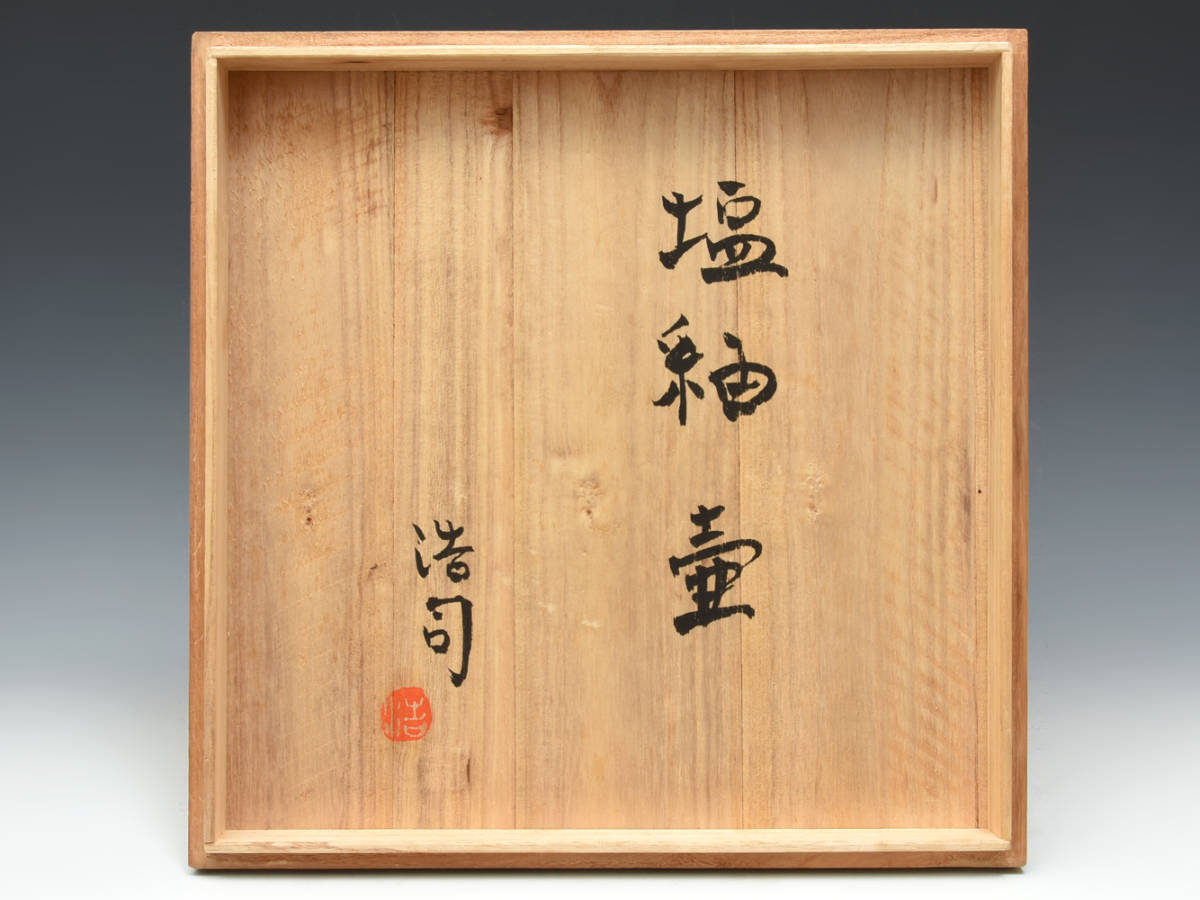 塩釉壷
浩司
浩